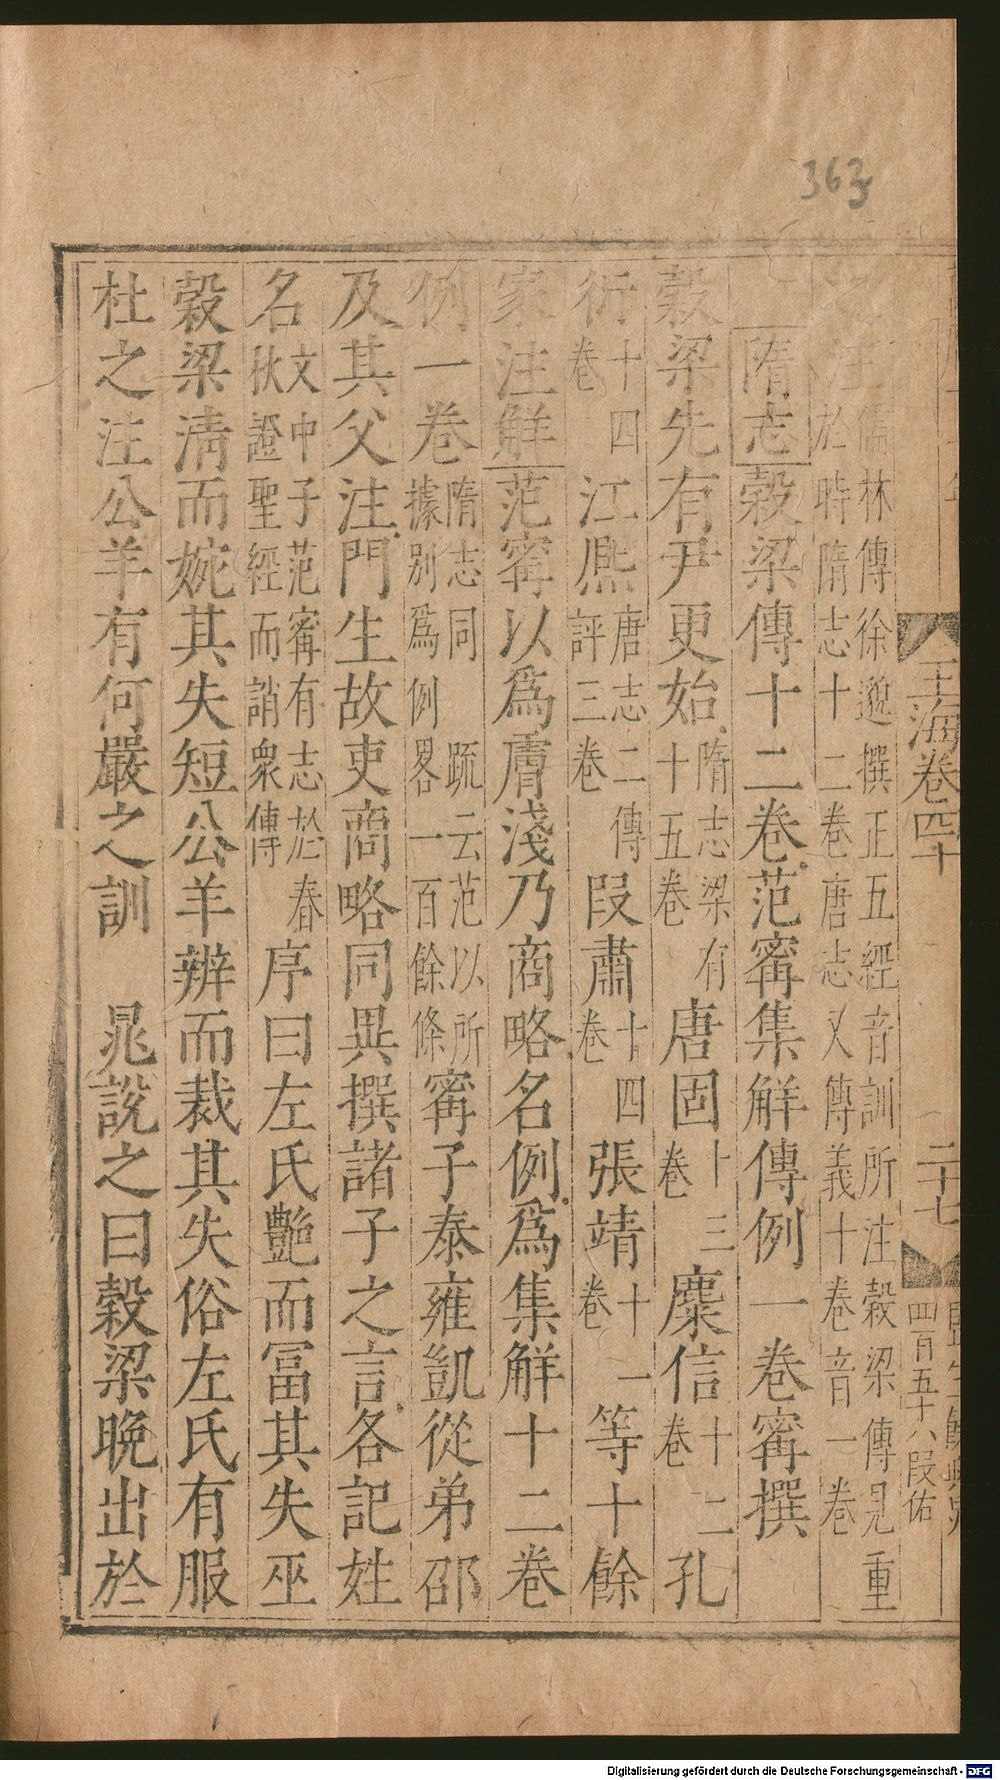 363
玉海卷四十
二十七
四百五十八段佑
注
儒林傳徐邈撰正五經音訓所注穀梁傳見重
於時隋志十二卷唐志又傳義十卷音一卷
隋志穀梁傳十二卷范甯集解傳例一卷甯撰
穀梁先有尹更始隋志梁有十五卷唐固十三卷麋信十二卷孔
衍十四卷江熈唐志二傳評三卷段肅十四卷張靖十一卷等十餘
家注解范甯以爲膚淺乃商略名例爲集解十二卷
例一卷隋志同疏云范以所據别爲例畧一百餘條甯子泰雍凱從弟邵
及其父注門生故吏商略同異撰諸子之言各記姓
名文中子范甯有志於春秋證聖經而誚衆傳序曰左氏艶而富其失巫
穀梁清而婉其失短公羊辨而裁其失俗左氏有服
杜之注公羊有何嚴之訓 晁說之曰穀梁晚出於
Digitalisierung gefördert durch die Deutsche Forschungsgemeinschaft - DFG